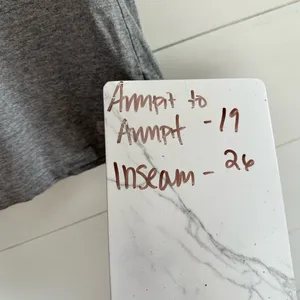 Armpit to
Armpit - 19
Inseam - 26